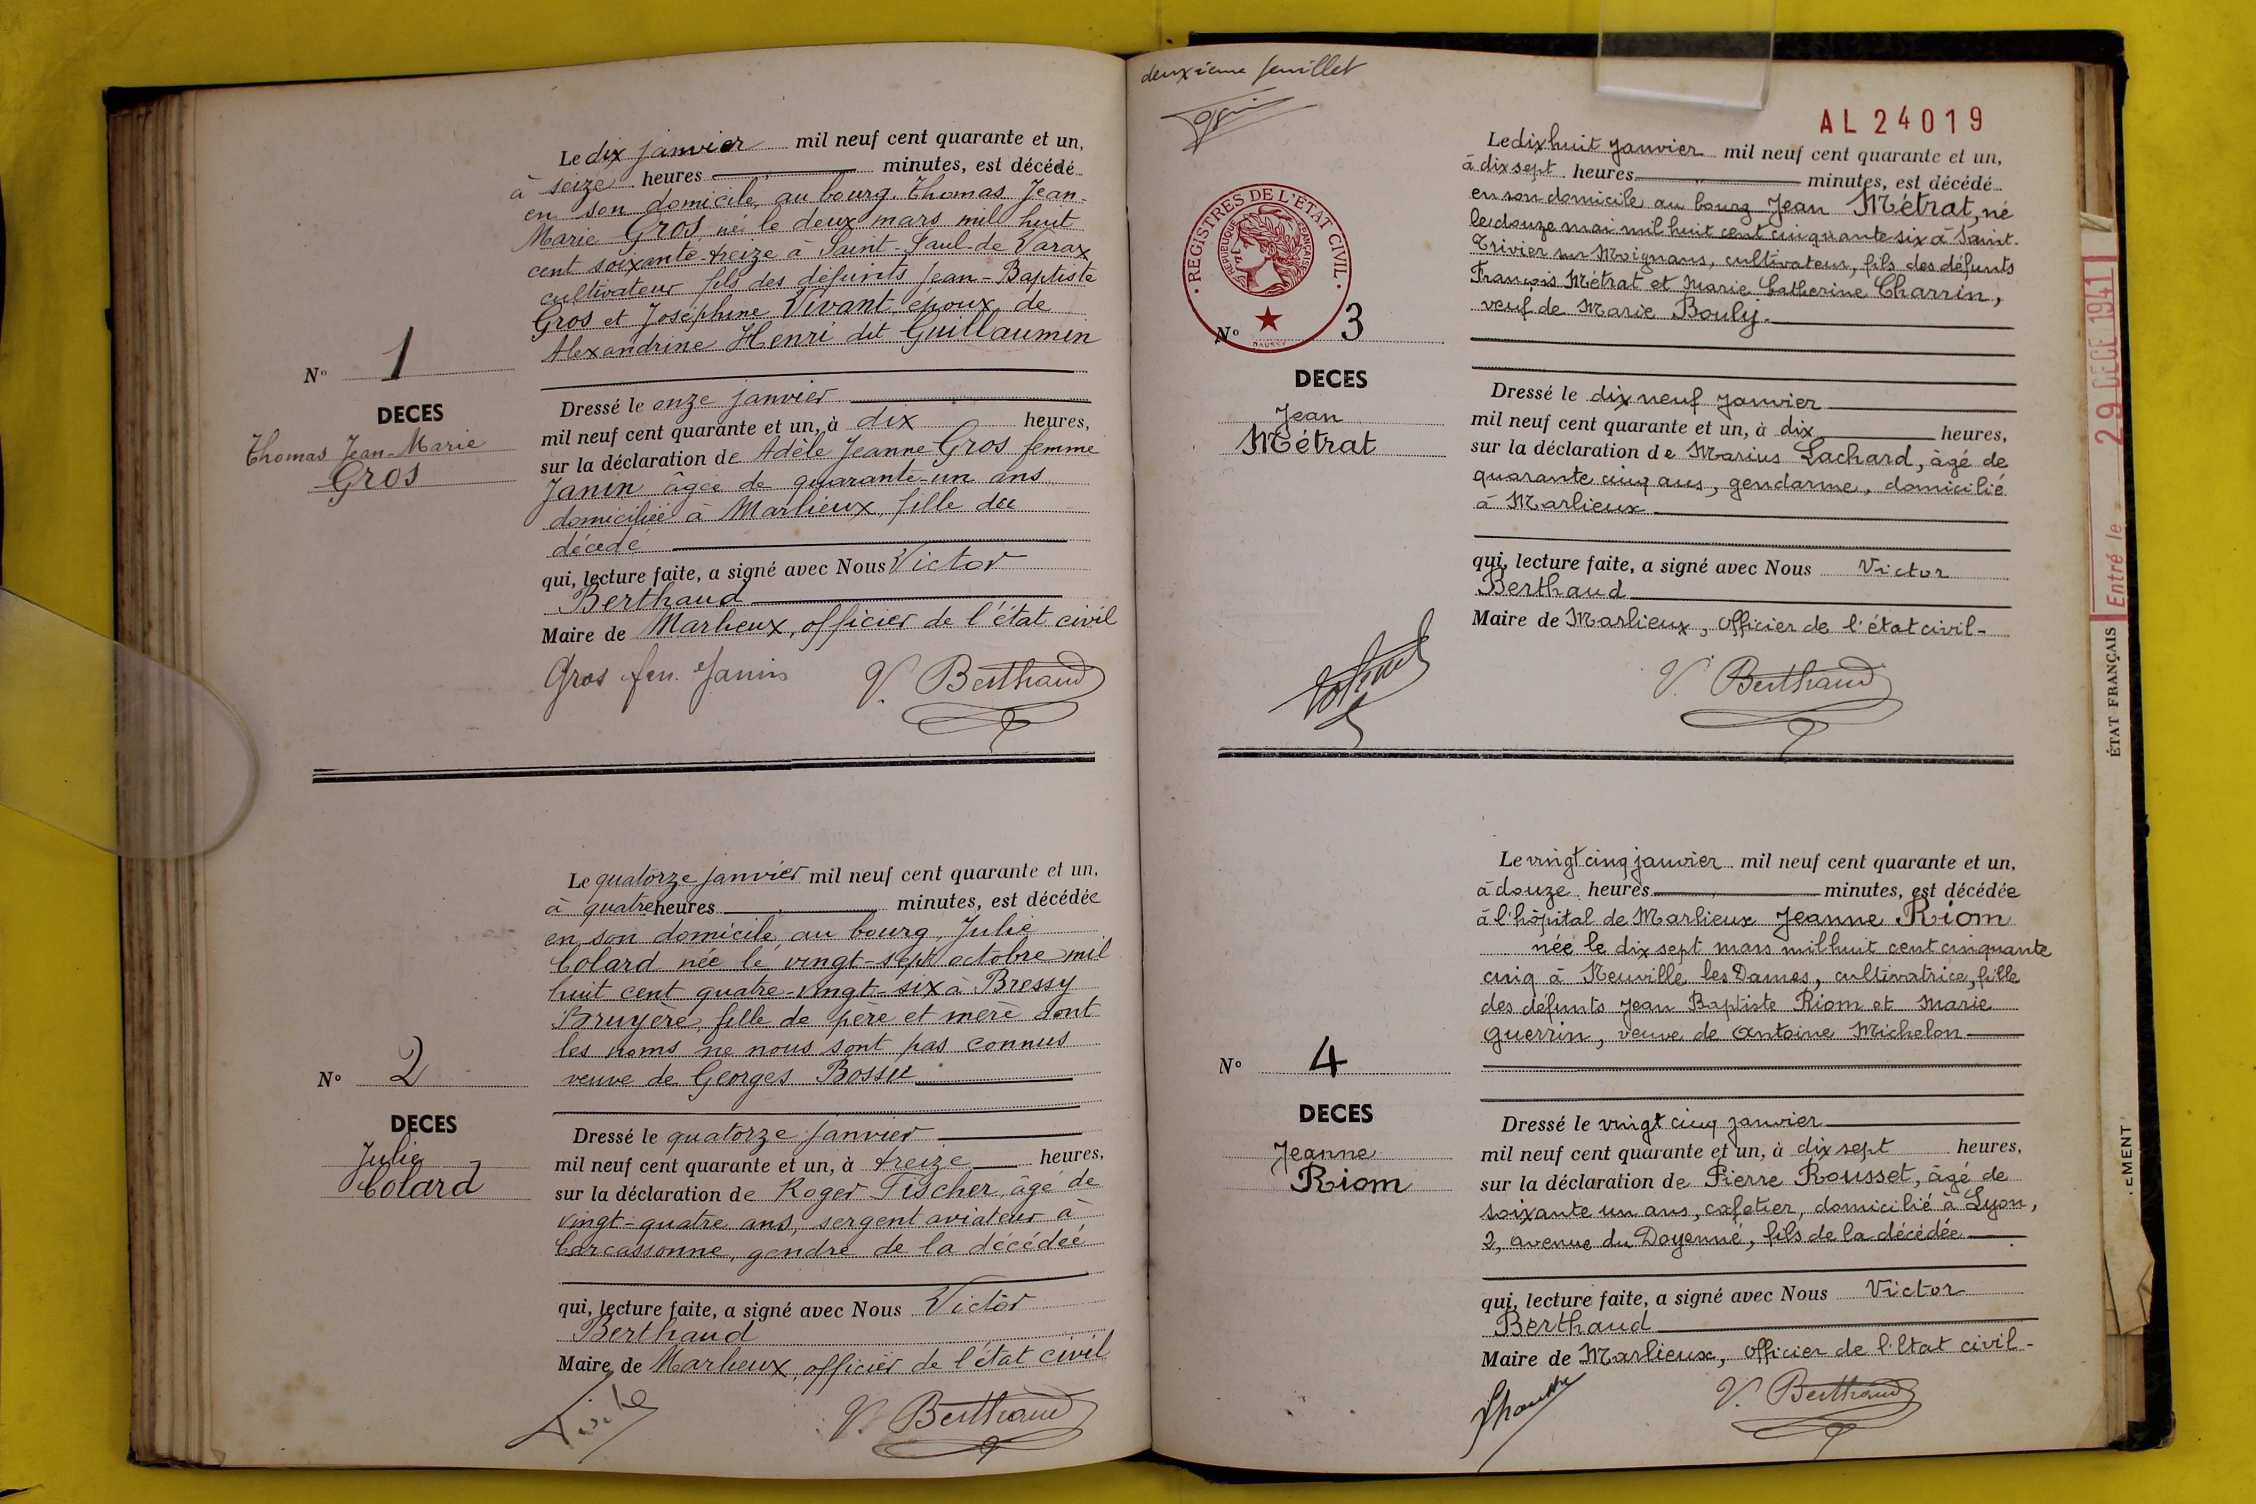 Le dix janvier mil neuf cent quarante et un,
à seize heures minutes, est décédé
en son domicile, au bourg, Thomas Jean-
Marie Gros, né le deux mars mil huit
cent soixante-treize à Saint-Paul-de Varax
cultivateur fils des défunts Jean-Baptiste
Gros et Joséphine Vivant, époux de
Alexandrine Henri dit Guillaumin
N° 1
DECES
Thomas Jean-Marie
Gros
Dressé le onze janvier
mil neuf cent quarante et un, à dix heures,
sur la déclaration de Adèle Jeanne Gros femme
Janin âgée de quarante-un ans
domiciliée à Marlieux, fille du
décédé
qui, lecture faite, a signé avec Nous Victor
Berthaud
Maire de Marlieux, officier de l'état civil
Gros fem. Janin V. Berthaud
Le quatorze janvier mil neuf cent quarante et un,
à quatre heures minutes, est décédée
en son domicile, au bourg, Julie
Colard née le vingt-sept octobre mil
huit cent quatre-vingt-six à Bressy
Bruyère, fille de père et mère dont
les noms ne nous sont pas connus
veuve de Georges Bossu
N° 2
DECES
Julie
Colard
Dressé le quatorze janvier
mil neuf cent quarante et un, à treize heures,
sur la déclaration de Roger Fischer, âgé de
vingt-quatre ans, sergent aviateur à
Carcassonne, gendre de la décédée
qui, lecture faite, a signé avec Nous Victor
Berthaud
Maire de Marlieux, officier de l'état civil
V. Berthaud
deuxième feuillet
AL 24019
Le dix huit janvier mil neuf cent quarante et un,
à dix sept heures minutes, est décédé
en son domicile au bourg Jean Métrat, né
le douze mai mil huit cent cinquante six à Saint-
Trivier sur Moignans, cultivateur, fils des défunts
François Métrat et Marie Catherine Charrin,
veuf de Marie Bouly.
REGISTRES DE L'ETAT CIVIL
REPUBLIQUE FRANÇAISE
N° 3
DECES
Jean
Métrat
Dressé le dix neuf janvier
mil neuf cent quarante et un, à dix heures,
sur la déclaration de Marius Lachard, âgé de
quarante cinq ans, gendarme, domicilié
à Marlieux
qui, lecture faite, a signé avec Nous Victor
Berthaud
Maire de Marlieux, officier de l'état civil-
V. Berthaud
Le vingt cinq janvier mil neuf cent quarante et un,
à douze heures minutes, est décédée
à l'hôpital de Marlieux Jeanne Riom
née le dix sept mars mil huit cent cinquante
cinq à Neuville les Dames, cultivatrice, fille
des défunts Jean Baptiste Riom et Marie
Guerrin, veuve de Antoine Michelon
N° 4
DECES
Jeanne
Riom
Dressé le vingt cinq janvier
mil neuf cent quarante et un, à dix sept heures,
sur la déclaration de Pierre Rousset, âgé de
soixante un ans, cafetier, domicilié à Lyon,
2, avenue du Doyenné, fils de la décédée
qui, lecture faite, a signé avec Nous Victor
Berthaud
Maire de Marlieux, officier de l'Etat civil-
V. Berthaud
Entré le - 29 DECE 1941
ÉTAT FRANÇAIS
EMENT